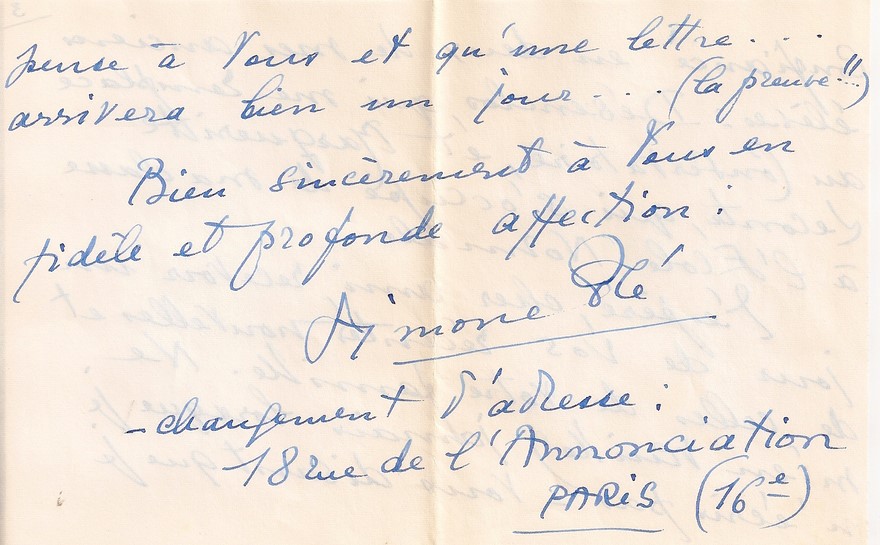 pense à Vous et qu'une lettre...
arrivera bien un jour... (la preuve!!...)
Bien sincèrement à Vous en
fidèle et profonde affection :
Simone Plé
- changement d'adresse :
18 rue de l'Annonciation
PARIS (16e)